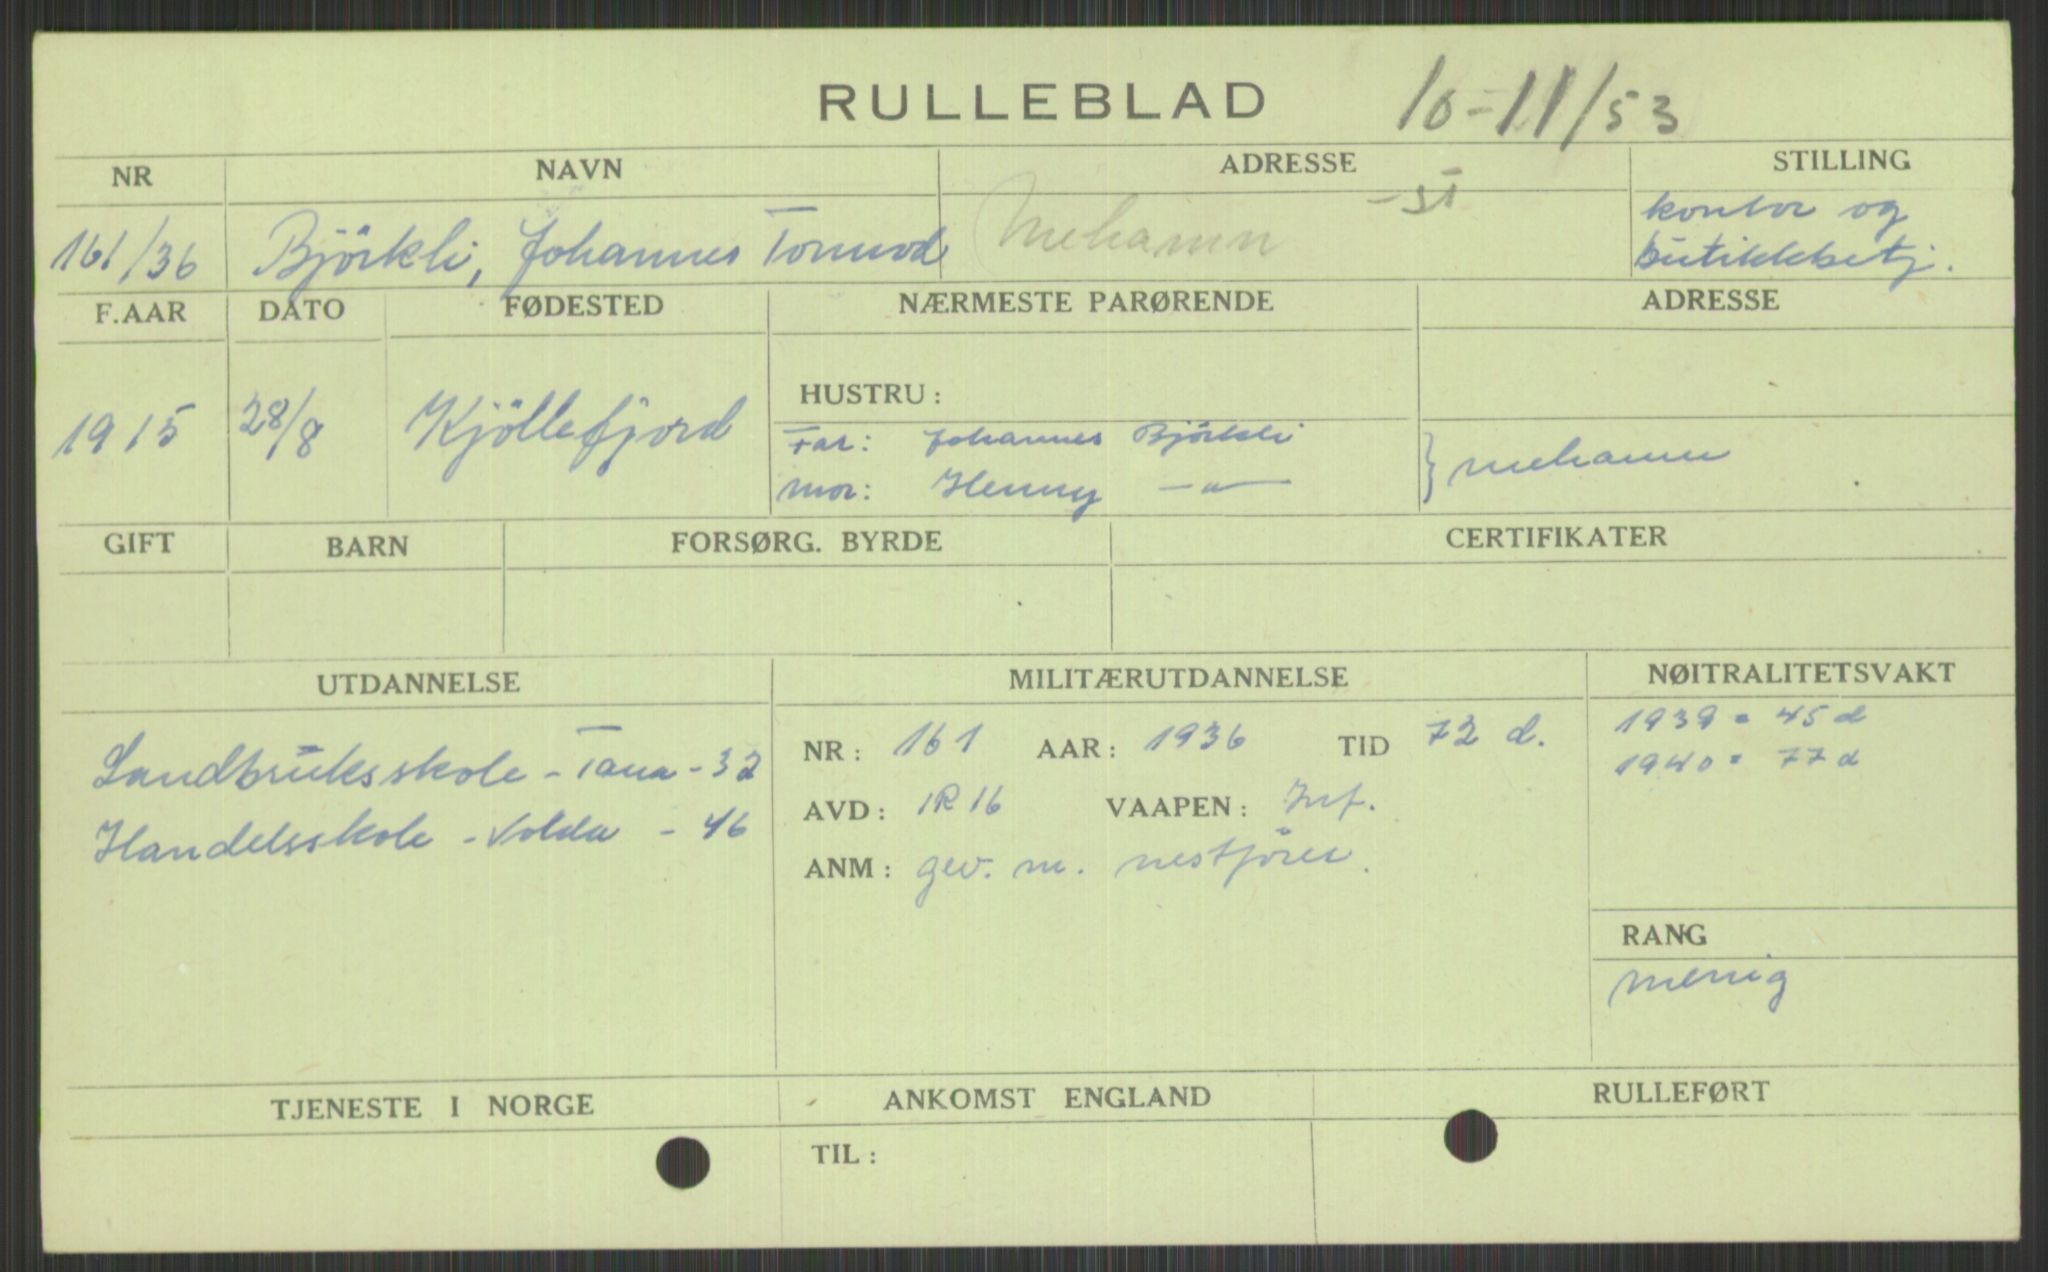 RULLEBLAD 10-11/53
NR NAVN ADRESSE STILLING
161/36 Björkli, Johannes Tormod Mehamn kontor og
butikkbetj.
F.AAR DATO FØDESTED NÆRMESTE PARØRENDE ADRESSE
HUSTRU:
1915 28/8 Kjöllefjord Far: Johannes Björkli } Mehamn
Mor: Henny —"—
GIFT BARN FORSØRG. BYRDE CERTIFIKATER
UTDANNELSE MILITÆRUTDANNELSE NØITRALITETSVAKT
Landbruksskole - Tana - 32 NR: 161 AAR: 1936 TID 72 d. 1939 = 45 d
1940 = 77 d
Handelsskole - Volda - 46 AVD: IR 16 VAAPEN: Inf.
ANM: gev. m. nestförer.
RANG
menig
TJENESTE I NORGE ANKOMST ENGLAND RULLEFØRT
TIL: